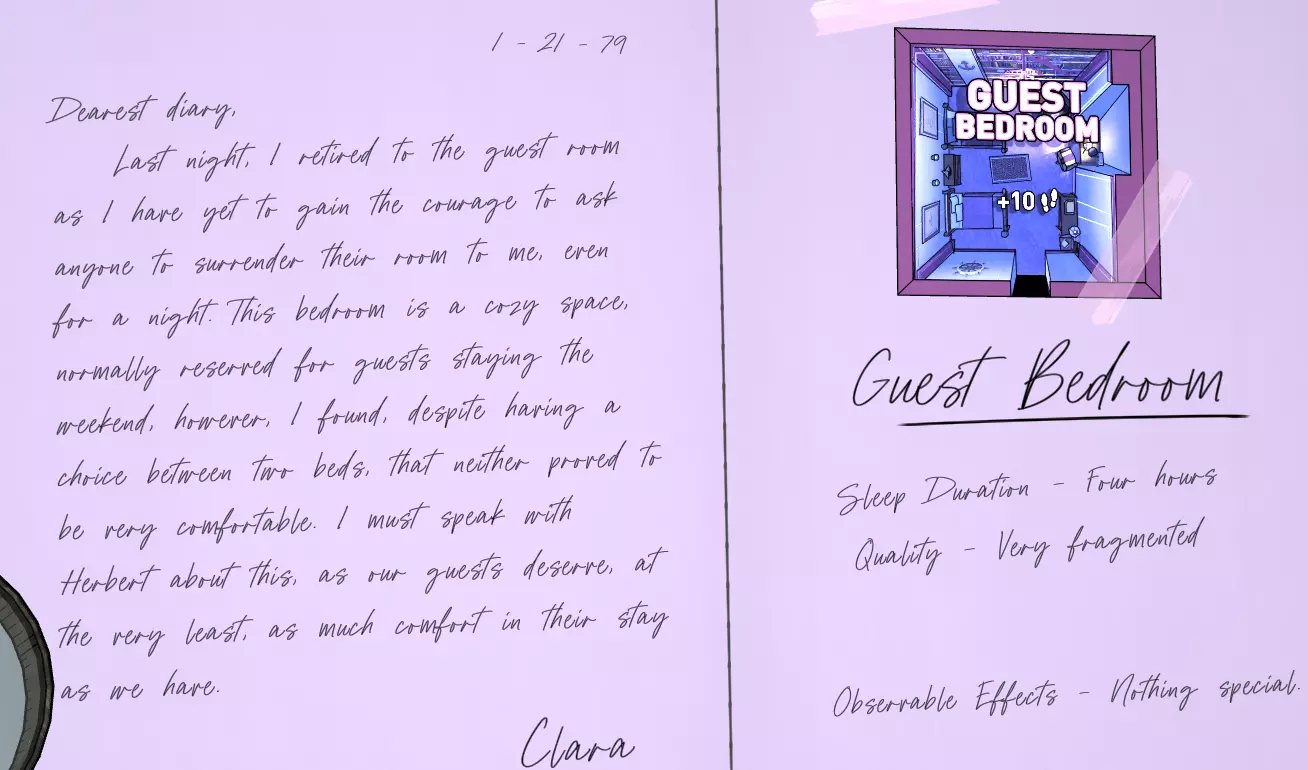 1 - 21 - 79
Dearest diary,
Last night, I retired to the guest room
as I have yet to gain the courage to ask
anyone to surrender their room to me, even
for a night. This bedroom is a cozy space,
normally reserved for guests staying the
weekend, however, I found, despite having a
choice between two beds, that neither proved to
be very comfortable. I must speak with
Herbert about this, as our guests deserve, at
the very least, as much comfort in their stay
as we have.
Clara
GUEST
BEDROOM
+10
Guest Bedroom
Sleep Duration - Four hours
Quality - Very fragmented
Observable Effects - Nothing special.